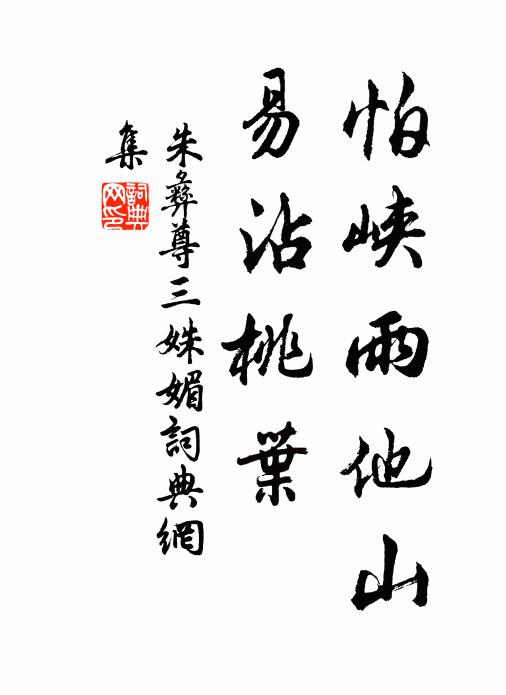 怕峡雨他山
易沾桃葉
朱彝尊三姝媚詞典網
集
詞典网印